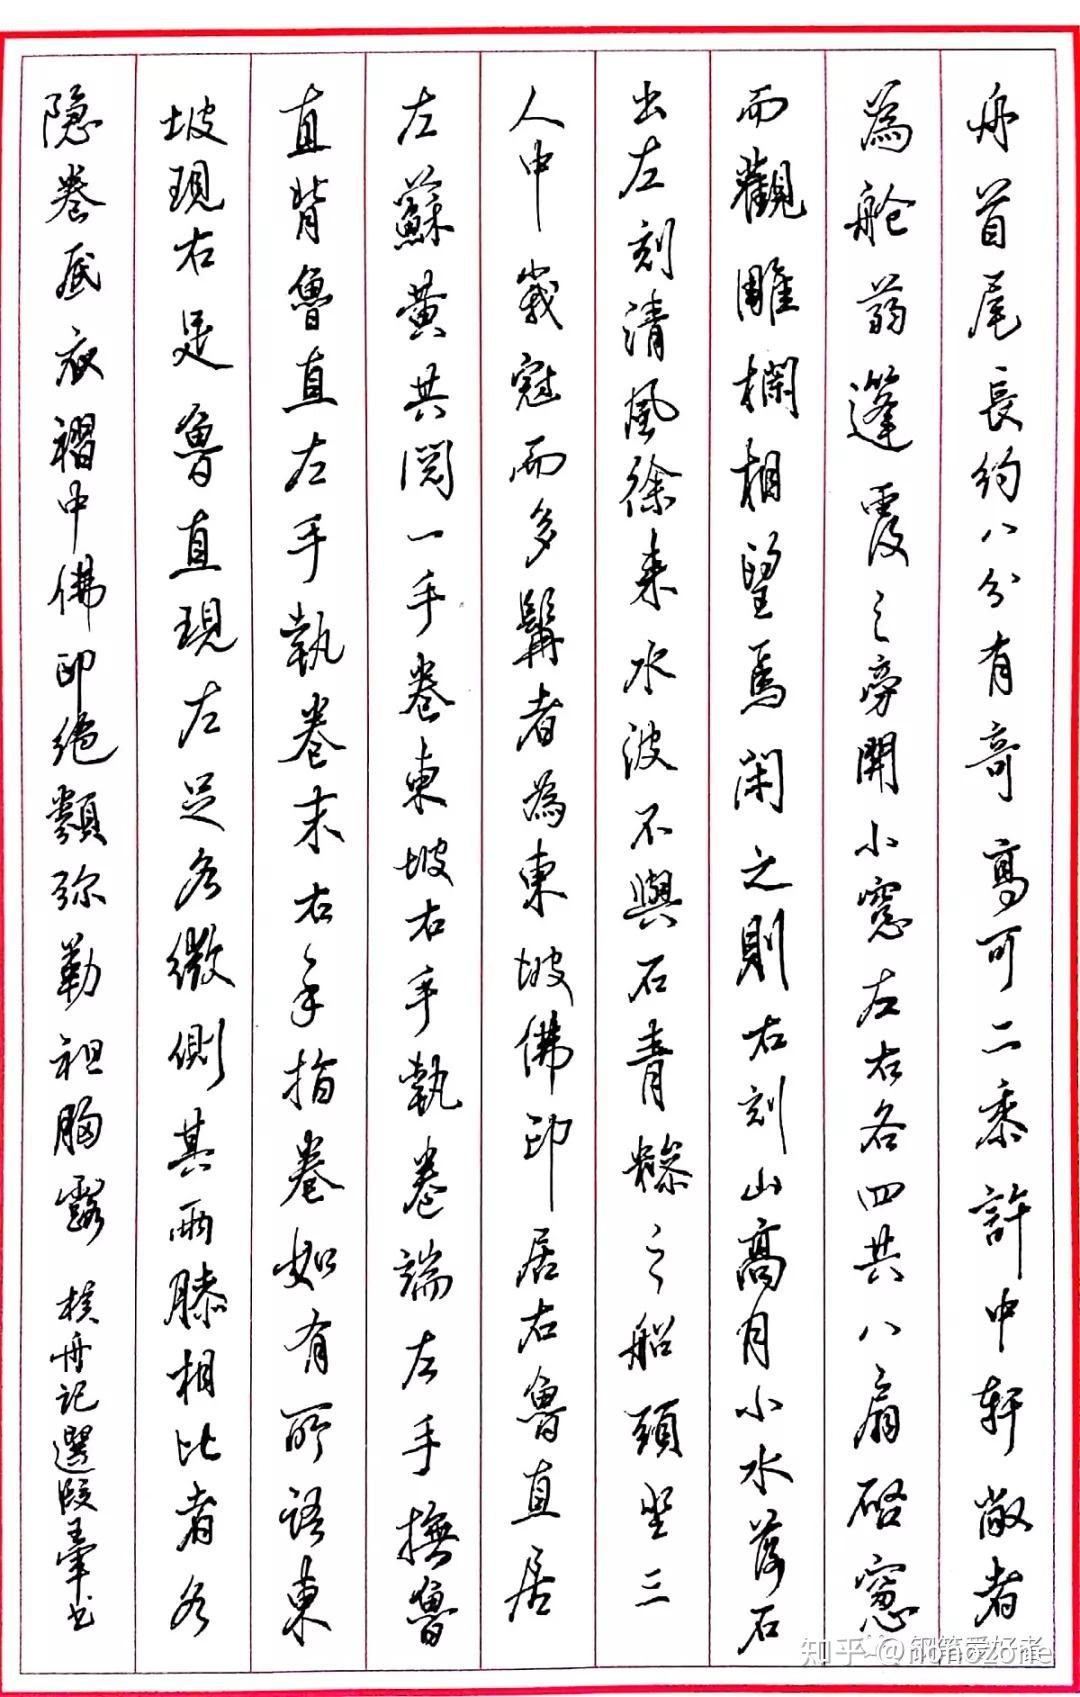 舟首尾長約八分有奇高可二黍許中軒敞者
為舱蒻篷覆之旁開小窓左右各四共八扇啓窓
而觀雕欄相望焉閉之則右刻山高月小水落石
出左刻清風徐来水波不興石青糝之船頭坐三
人中峩冠而多髯者為東坡佛印居右魯直居
左蘇黃共閱一手卷東坡右手執卷端左手撫魯
直背魯直左手執卷末右手指卷如有所語東
坡現右足魯直現左足各微側其兩膝相比者各
隐卷底衣褶中佛印絕類弥勒袒胸露 核舟記選段王书
知乎 @nonozone
钢笔爱好者